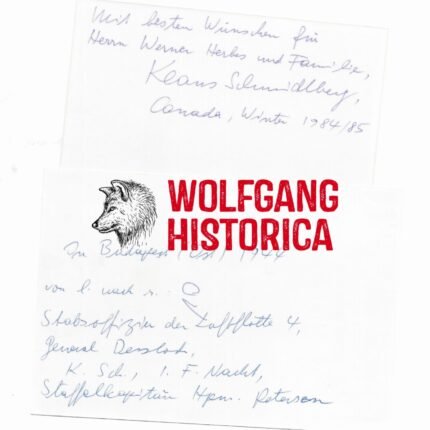 Mit besten Wünschen für
Herrn Werner Herbes und Familie,
Klaus Schmidlberg,
Canada, Winter 1984/85
WOLFGANG
HISTORICA
In Budapest 1944
von l. nach r.
Stabsoffizier der Luftflotte 4,
General Dessloch,
K. Sch., I. F. Nacht,
Staffelkapitän Hptm. Peterson